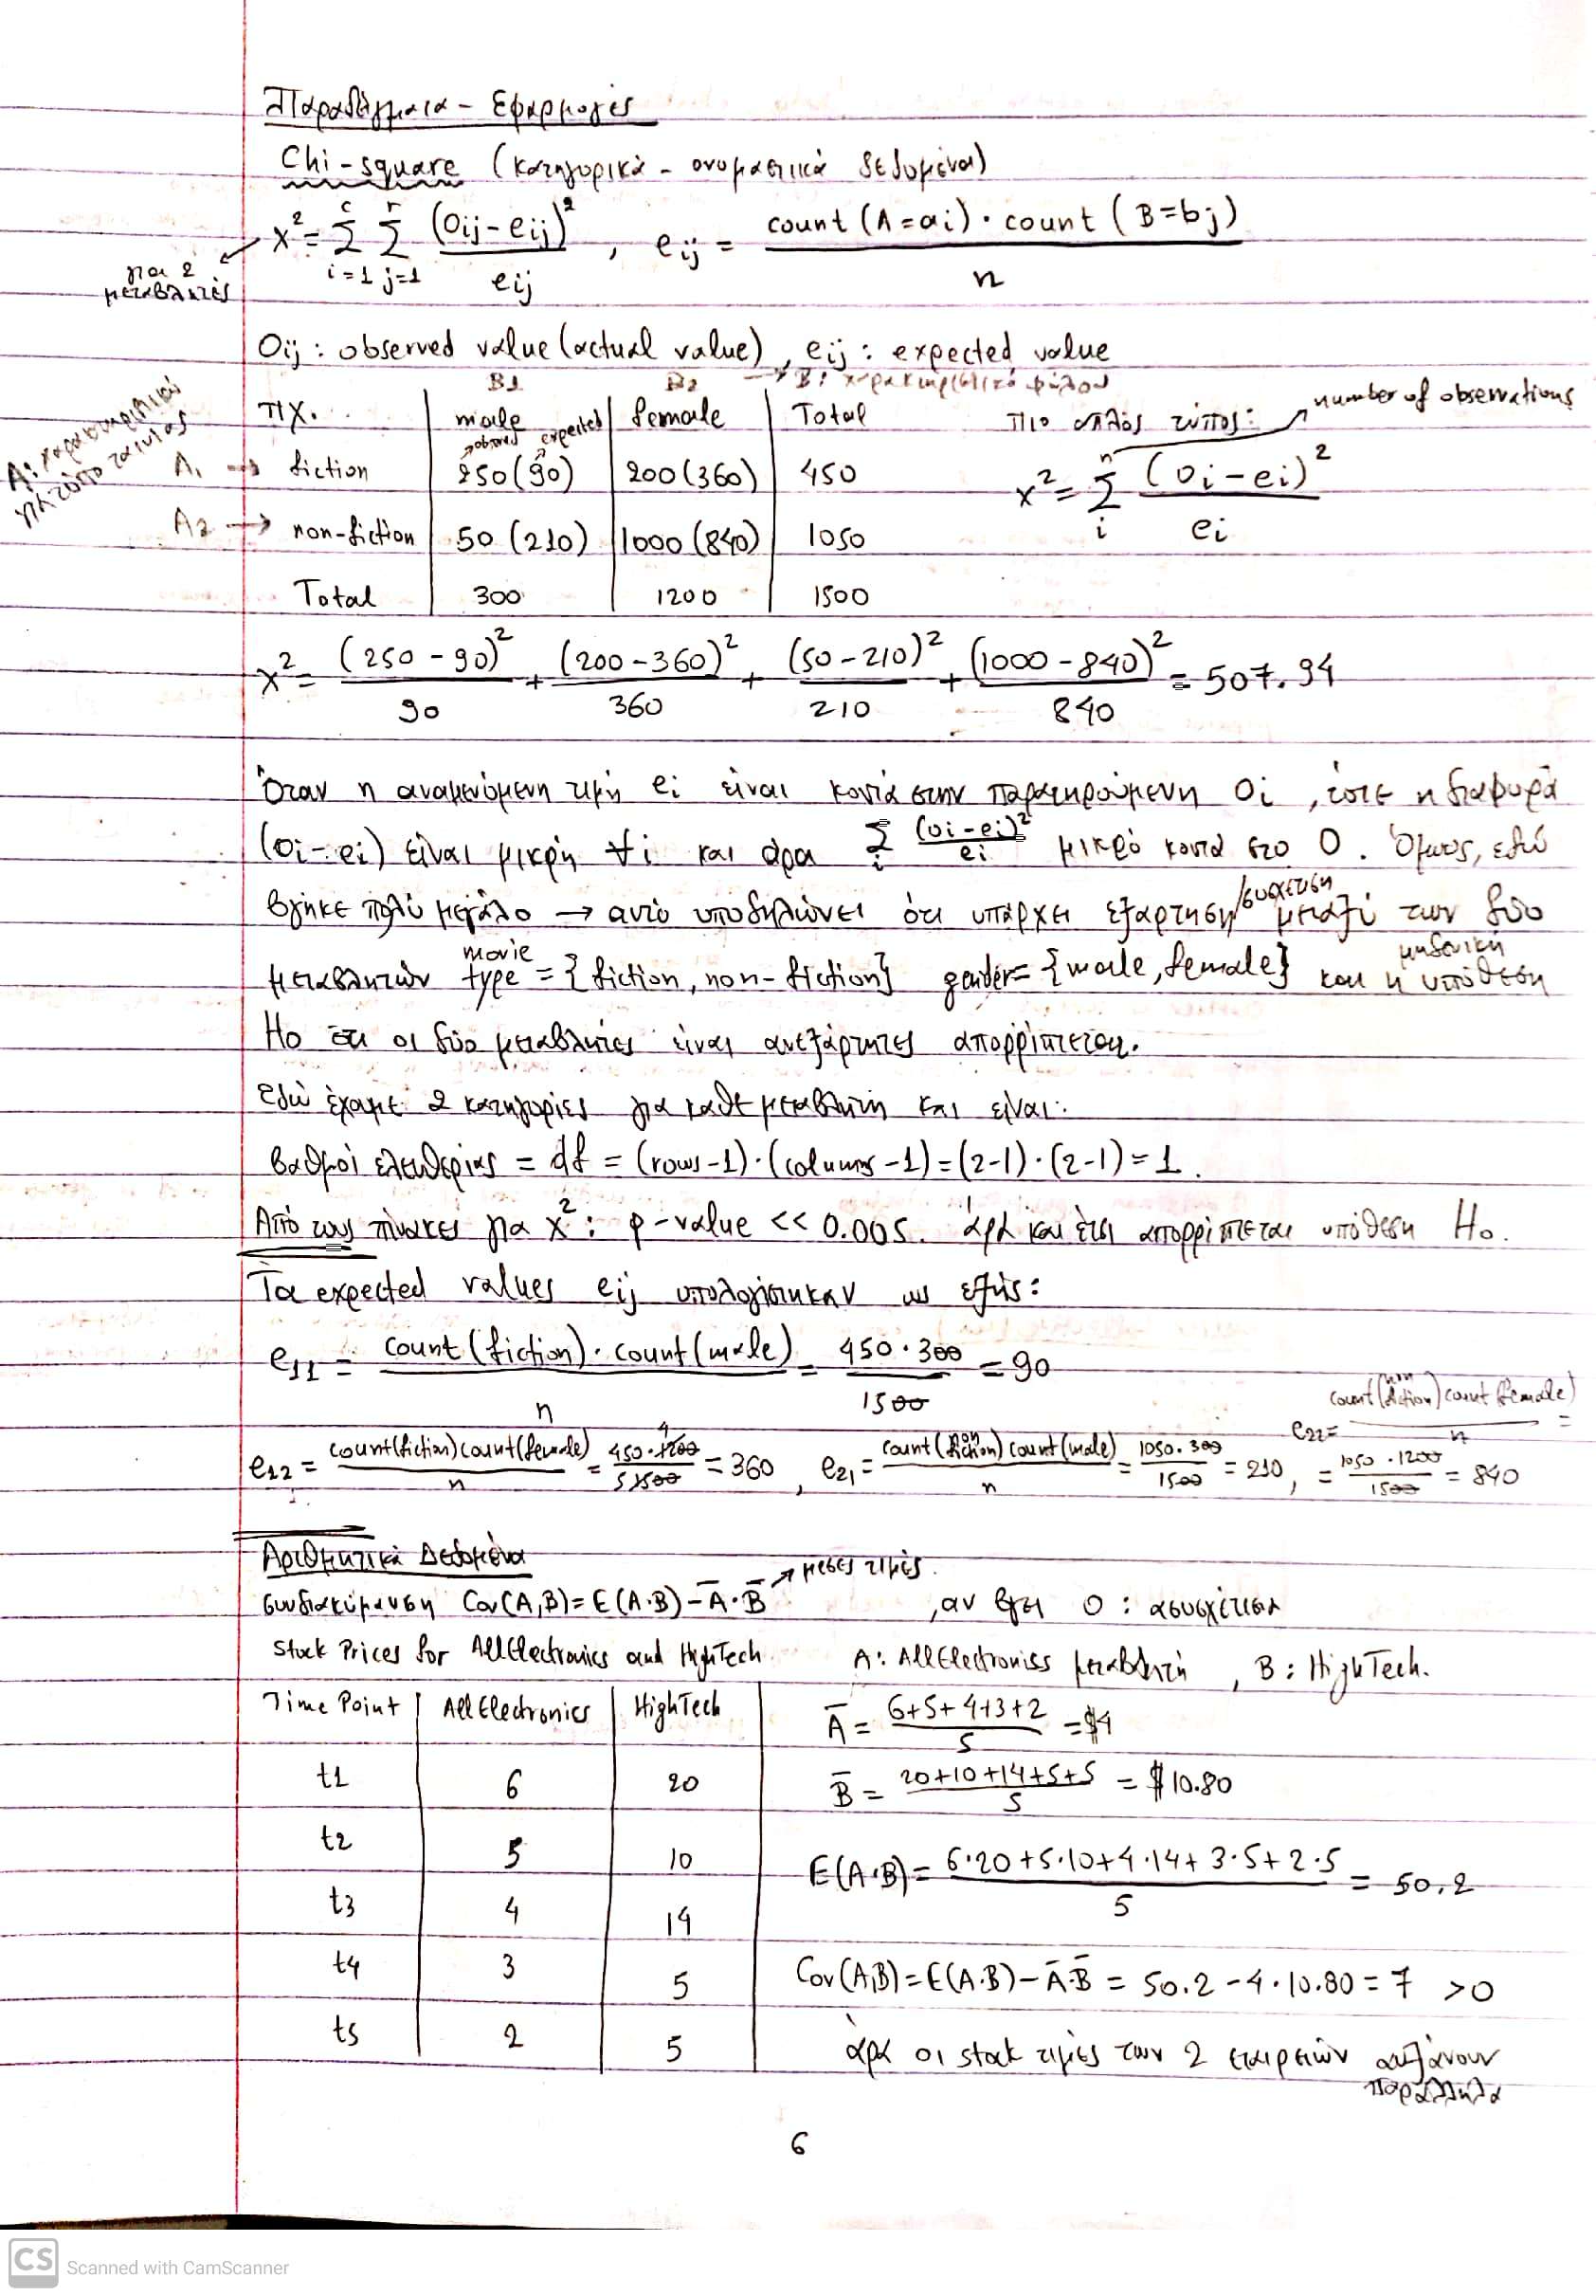 Παραδείγματα - Εφαρμογές
Chi-square (κατηγορικά - ονομαστικά δεδομένα)
x² = Σ_{i=1}^{c} Σ_{j=1}^{r} (Oij - eij)² / eij , eij = count (A=ai) · count (B=bj) / n
για 2 μεταβλητές
Oij : observed value (actual value) , eij : expected value
B1 B2 → B: χαρακτηριστικό φύλου
A: χαρακτηριστικό για τύπο ταινίας
πχ. | male | female | Total
observed expected
A1 → fiction | 250 (90) | 200 (360) | 450
A2 → non-fiction | 50 (210) | 1000 (840) | 1050
Total | 300 | 1200 | 1500
Πιο απλός τύπος: number of observations
x² = Σ_{i}^{n} (oi - ei)² / ei
x² = (250 - 90)² / 90 + (200 - 360)² / 360 + (50 - 210)² / 210 + (1000 - 840)² / 840 = 507.94
Όταν η αναμενόμενη τιμή ei είναι κοντά στην παρατηρούμενη Oi , τότε η διαφορά
(oi - ei) είναι μικρή ∀i και άρα Σ_i (oi - ei)² / ei μικρό κοντά στο 0. Όμως, εδώ
βγήκε πολύ μεγάλο → αυτό υποδηλώνει ότι υπάρχει εξάρτηση/συσχέτιση μεταξύ των δύο
μεταβλητών movie type = {fiction, non-fiction} gender = {male, female} και η μηδενική υπόθεση
Ho ότι οι δύο μεταβλητές είναι ανεξάρτητες απορρίπτεται.
Εδώ έχουμε 2 κατηγορίες για κάθε μεταβλητή και είναι:
Βαθμοί ελευθερίας = df = (rows -1) · (columns -1) = (2-1) · (2-1) = 1.
Από τους πίνακες για x² : p-value << 0.005. άρα και έτσι απορρίπτεται υπόθεση Ho.
Τα expected values eij υπολογίστηκαν ως εξής:
e11 = count (fiction) · count (male) / n = 450 · 300 / 1500 = 90
e12 = count(fiction) count(female) / n = 450 · 1200 / 1500 = 360 , e21 = count (non fiction) count (male) / n = 1050 · 300 / 1500 = 210 ,
e22 = count (non fiction) count female) / n = = 1050 · 1200 / 1500 = 840
Αριθμητικά Δεδομένα
συνδιακύμανση Cov(A,B) = E(A·B) - A̅·B̅ → μέσες τιμές. , αν βγει 0 : ασυσχέτιστα
Stock Prices for AllElectronics and HighTech A: AllElectronics μεταβλητή , B: HighTech.
Time Point | AllElectronics | HighTech
t1 | 6 | 20
t2 | 5 | 10
t3 | 4 | 14
t4 | 3 | 5
t5 | 2 | 5
A̅ = 6+5+4+3+2 / 5 = $4
B̅ = 20+10+14+5+5 / 5 = $10.80
E(A·B) = 6·20+5·10+4·14+3·5+2·5 / 5 = 50.2
Cov(A,B) = E(A·B) - A̅·B̅ = 50.2 - 4·10.80 = 7 >0
άρα οι stock τιμές των 2 εταιρειών αυξάνουν
παράλληλα
6
CS Scanned with CamScanner